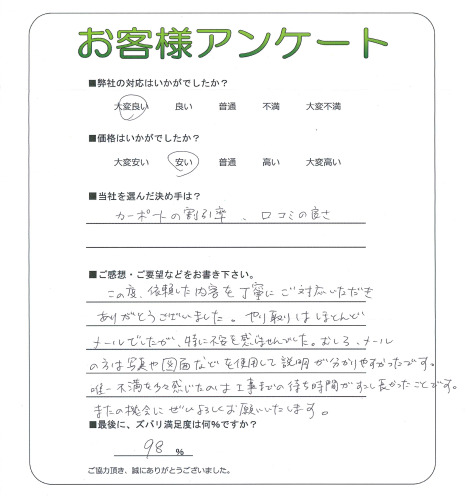 お客様アンケート
■弊社の対応はいかがでしたか？
大変良い 良い 普通 不満 大変不満
■価格はいかがでしたか？
大変安い 安い 普通 高い 大変高い
■当社を選んだ決め手は？
カーポートの割引率、口コミの良さ
■ご感想・ご要望などをお書き下さい。
この度、依頼した内容を丁寧にご対応いただき
ありがとうございました。やり取りはほとんど
メールでしたが、特に不
を感じませんでした。むしろ、メール
の方は写真や図面などを使用して説明が分かりやすかったです。
唯一不満を
感じたのは工事までの待ち時間が少し長かったことです。
またの機会にぜひよろしくお願いいたします。
■最後に、ズバリ満足度は何％ですか？
98 %
ご協力頂き、誠にありがとうございました。